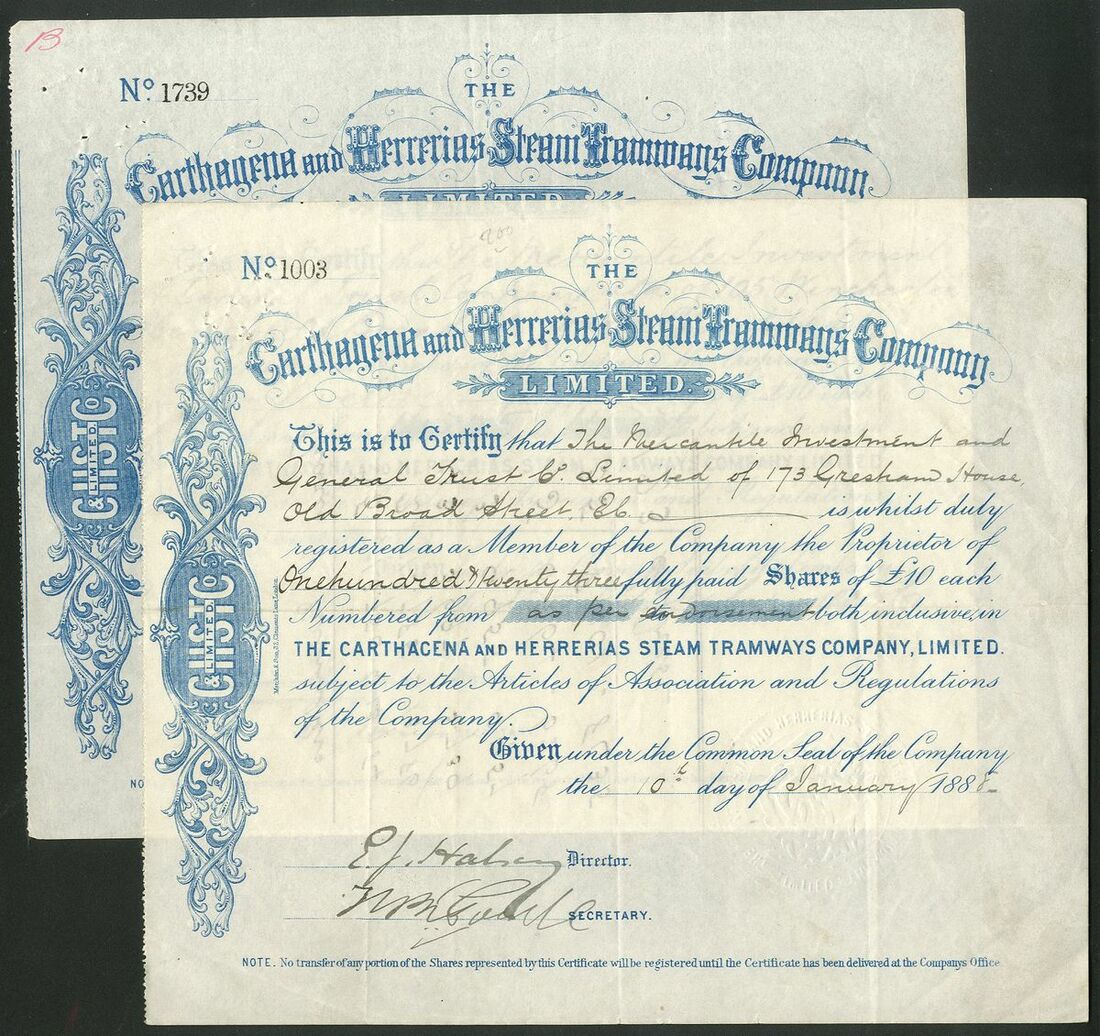 B
Nº 1739
THE
Carthagena and Herrerias Steam Tramways Company
LIMITED.
CHSTCº
& LIMITED.
NO
800
Nº 1003
THE
Carthagena and Herrerias Steam Tramways Company
LIMITED.
CHSTCº
& LIMITED.
This is to Certify that The Mercantile Investment and
General Trust Cº Limited of 173 Gresham House
Old Broad Street. EC is whilst duly
registered as a Member of the Company the Proprietor of
One hundred & twenty three fully paid Shares of £10 each
Numbered from as per endorsement both inclusive, in
THE CARTHAGENA AND HERRERIAS STEAM TRAMWAYS COMPANY, LIMITED.
subject to the Articles of Association and Regulations
of the Company.
Given under the Common Seal of the Company
the 10th day of January 1888
E.J. Halsey Director.
SECRETARY.
NOTE. No transfer of any portion of the Shares represented by this Certificate will be registered until the Certificate has been delivered at the Companys Office